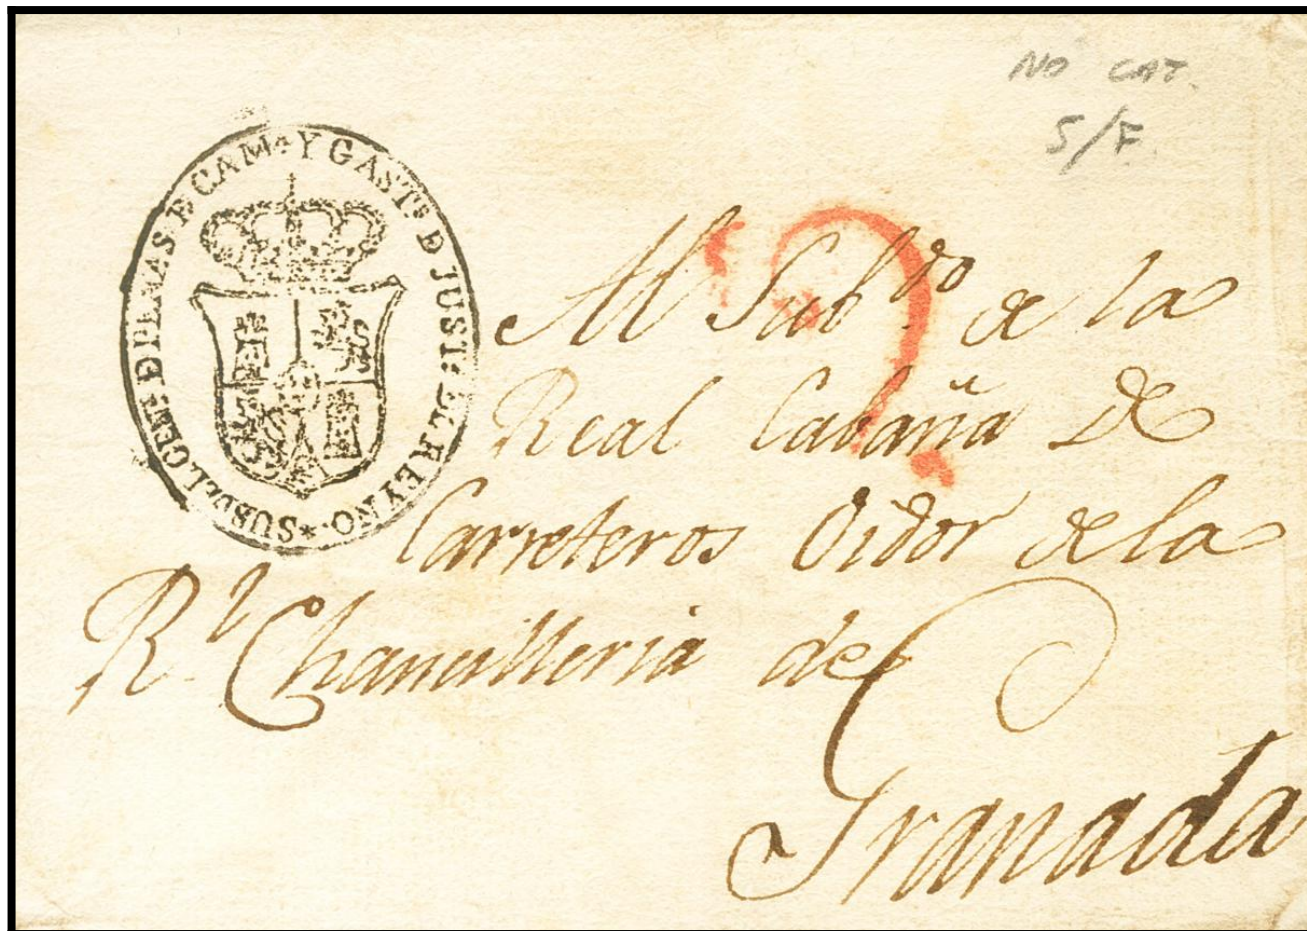 NO CAT.
S/F.
SUBDEL. GEN. DE PENAS DE CAM. Y GAST.s D JUST.a DEL REYNO
Al Sub.do de la
Real Cabaña de
Carreteros Oidor de la
R.l Chancilleria de
Granada